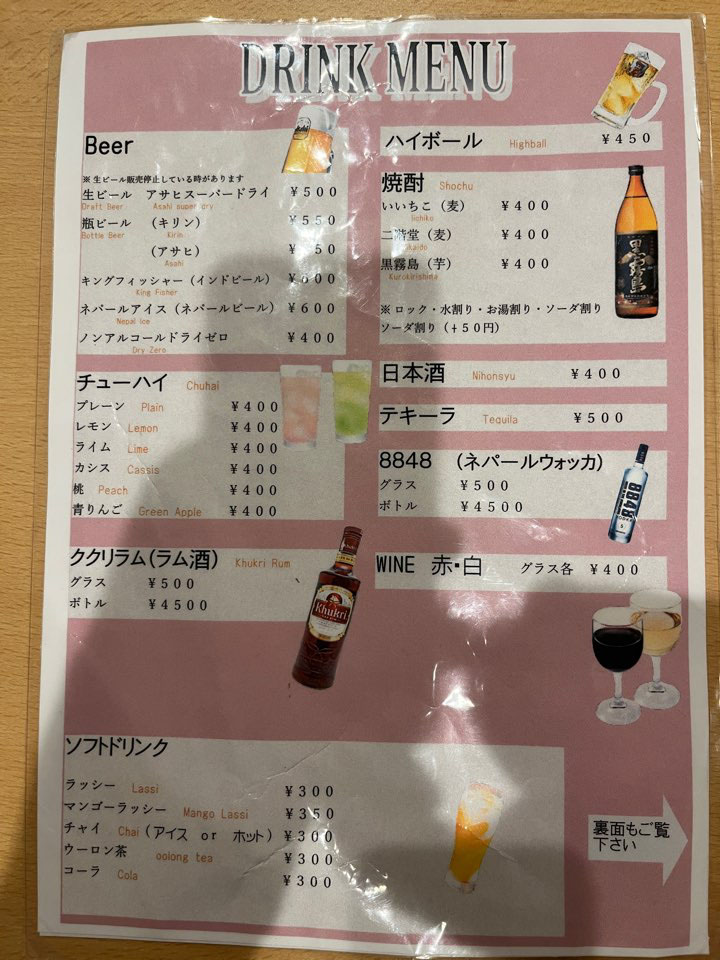 DRINK MENU
Beer
※生ビール販売停止している時があります
生ビール アサヒスーパードライ ¥500
Draft Beer Asahi super dry
瓶ビール (キリン) ¥550
Bottle Beer Kirin
(アサヒ) ¥ 50
Asahi
キングフィッシャー(インドビール) ¥600
King Fisher
ネパールアイス(ネパールビール) ¥600
Nepal Ice
ノンアルコールドライゼロ ¥400
Dry Zero
チューハイ Chuhai
プレーン Plain ¥400
レモン Lemon ¥400
ライム Lime ¥400
カシス Cassis ¥400
桃 Peach ¥400
青りんご Green Apple ¥400
ククリラム(ラム酒) Khukri Rum
グラス ¥500
ボトル ¥4500
Khukri
ハイボール Highball ¥450
焼酎 Shochu
いいちこ(麦) ¥400
Iichiko
二階堂(麦) ¥400
黒霧島(芋) ¥400
Kurokirishima
※ロック・水割り・お湯割り・ソーダ割り
ソーダ割り(+50円)
黒霧島
日本酒 Nihonsyu ¥400
テキーラ Tequila ¥500
8848 (ネパールウォッカ)
グラス ¥500
ボトル ¥4500
8848
WINE 赤・白 グラス各 ¥400
ソフトドリンク
ラッシー Lassi ¥300
マンゴーラッシー Mango Lassi ¥350
チャイ Chai(アイス or ホット) ¥300
ウーロン茶 oolong tea ¥300
コーラ Cola ¥300
裏面もご覧
下さい